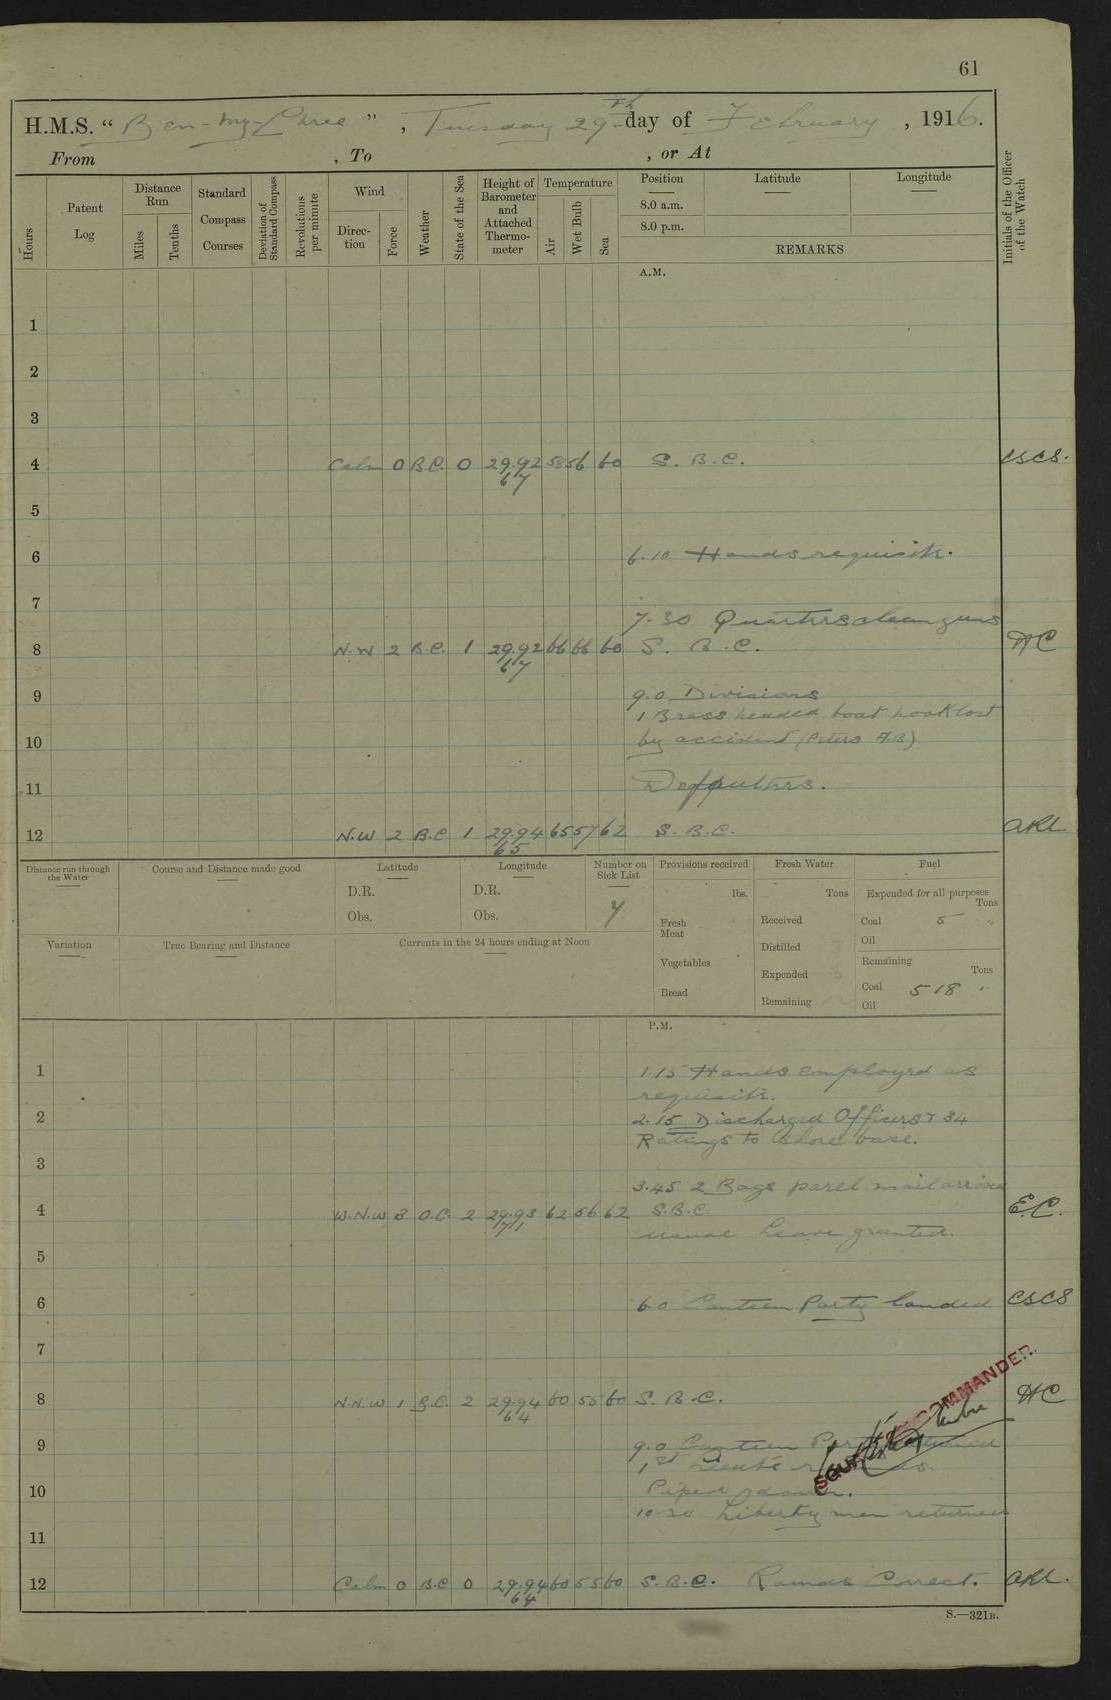 61
H.M.S. “ Ben-my-Chree ” , Tuesday 29th day of February , 1916.
From , To , or At
Hours
Patent Log
Distance Run
Miles
Tenths
Standard Compass Courses
Deviation of Standard Compass
Revolutions per minute
Wind
Direction
Force
Weather
State of the Sea
Height of Barometer and Attached Thermometer
Temperature
Air
Wet Bulb
Sea
Position
8.0 a.m.
8.0 p.m.
Latitude
Longitude
REMARKS
Initials of the Officer of the Watch
A.M.
1
2
3
4 Calm 0 B.C. 0 29.92 58 56 60 S. B. C. CSCS.
67
5
6 6.10 Hands requisite.
7
7.30 Quarters clean guns
8 N.W 2 B.C. 1 29.92 66 66 60 S. B. C. HC
67
9 9.0 Divisions
1 Brass headed boat hook lost
10 by accident (Peters A.B)
11 Defaulters.
12 N.W 2 B.C 1 29.94 65 57 62 S. B.C. ARL
65
Distance run through the Water
Course and Distance made good
Latitude
D.R.
Obs.
Longitude
D.R.
Obs.
Number on Sick List
7
Provisions received
lbs.
Fresh Meat
Vegetables
Bread
Fresh Water
Tons
Received
Distilled
Expended
Remaining
Fuel
Expended for all purposes
Tons
Coal 5 "
Oil
Remaining
Tons
Coal 518 "
Oil
Variation
True Bearing and Distance
Currents in the 24 hours ending at Noon
P.M.
1 1.15 Hands employed as
requisite.
2 2.15 Discharged Officers & 34
Ratings to shore base.
3
3.45 2 Bags parcl mail arrived
4 W.N.W 3 O.C. 2 29.93 62 56 62 S.B.C. E.C.
71
usual leave granted.
5
6 6.0 Canteen Party landed CSCS
7
8 N.N.W 1 B.C. 2 29.94 60 55 60 S. B. C. HC
64
COMMANDER.
9 9.0 Canteen Party returned
1st Lieut's
10 Piped down.
10.30 Liberty men returned
11
12 Calm 0 B.C 0 29.94 60 55 60 S.B.C. Rounds Correct. ARL.
64
S.—321B.